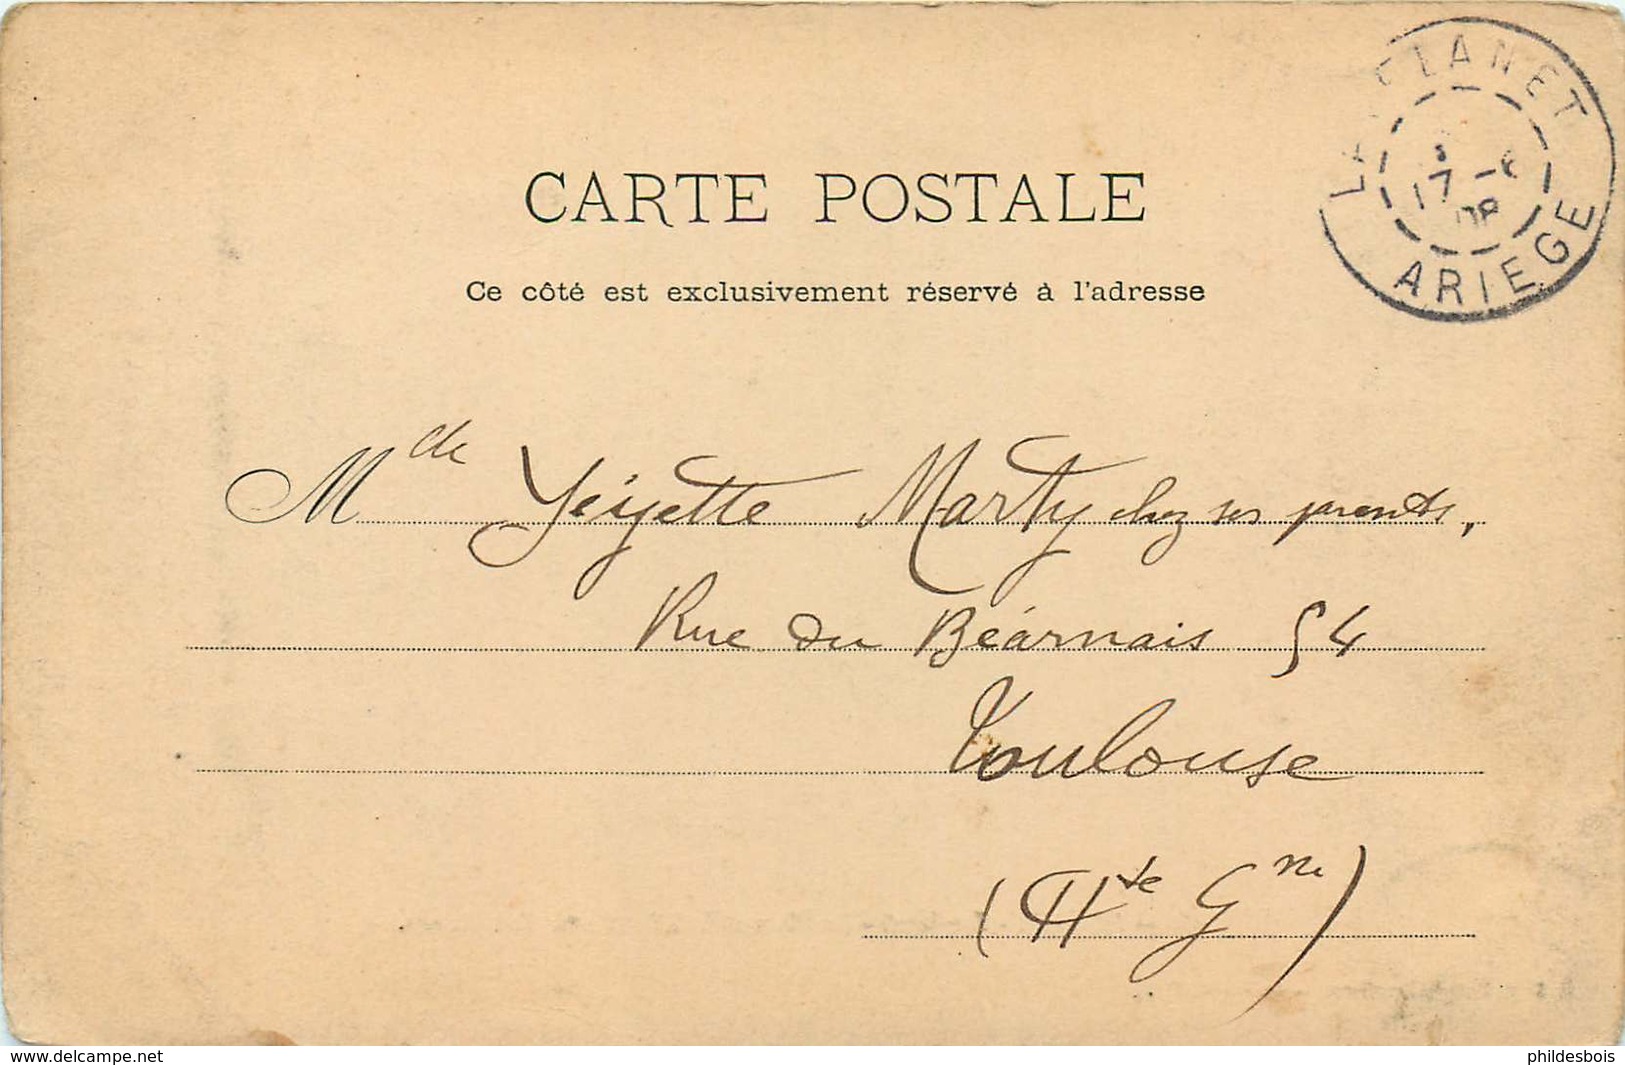 CARTE POSTALE
Ce côté est exclusivement réservé à l'adresse
LAVELANET
17 -6
08
ARIEGE
Mdlle Yéyette Marty chez ses parents,
Rue du Béarnais 54
Toulouse
(Hte Gne)
www.delcampe.net
phildesbois